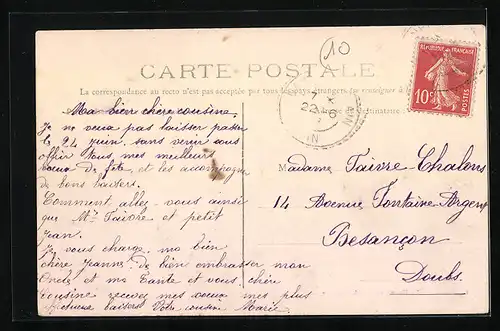 10
CARTE POSTALE
La correspondance au recto n'est pas acceptée par tous les pays étrangers (se renseigner à
RÉPUBLIQUE FRANÇAISE
10c
POSTES
7
22-6
Ma bien chère cousine,
Je ne veux pas laisser passer
le 24 juin, sans venir vous
offrir tous mes meilleurs
vœux de fête, et les accompagne
de bons baisers.
Comment allez-vous ainsi
que Mr Faivre et petit
Jean.
Je vous charge, ma bien
chère Jeanne, de bien embrasser mon
Oncle et ma Tante et vous, chère
Cousine recevez mes vœux mes plus
affectueux baisers Votre cousine Marie
Madame Faivre-Chalons
14 Avenue Fontaine Argent
Besançon
Doubs.